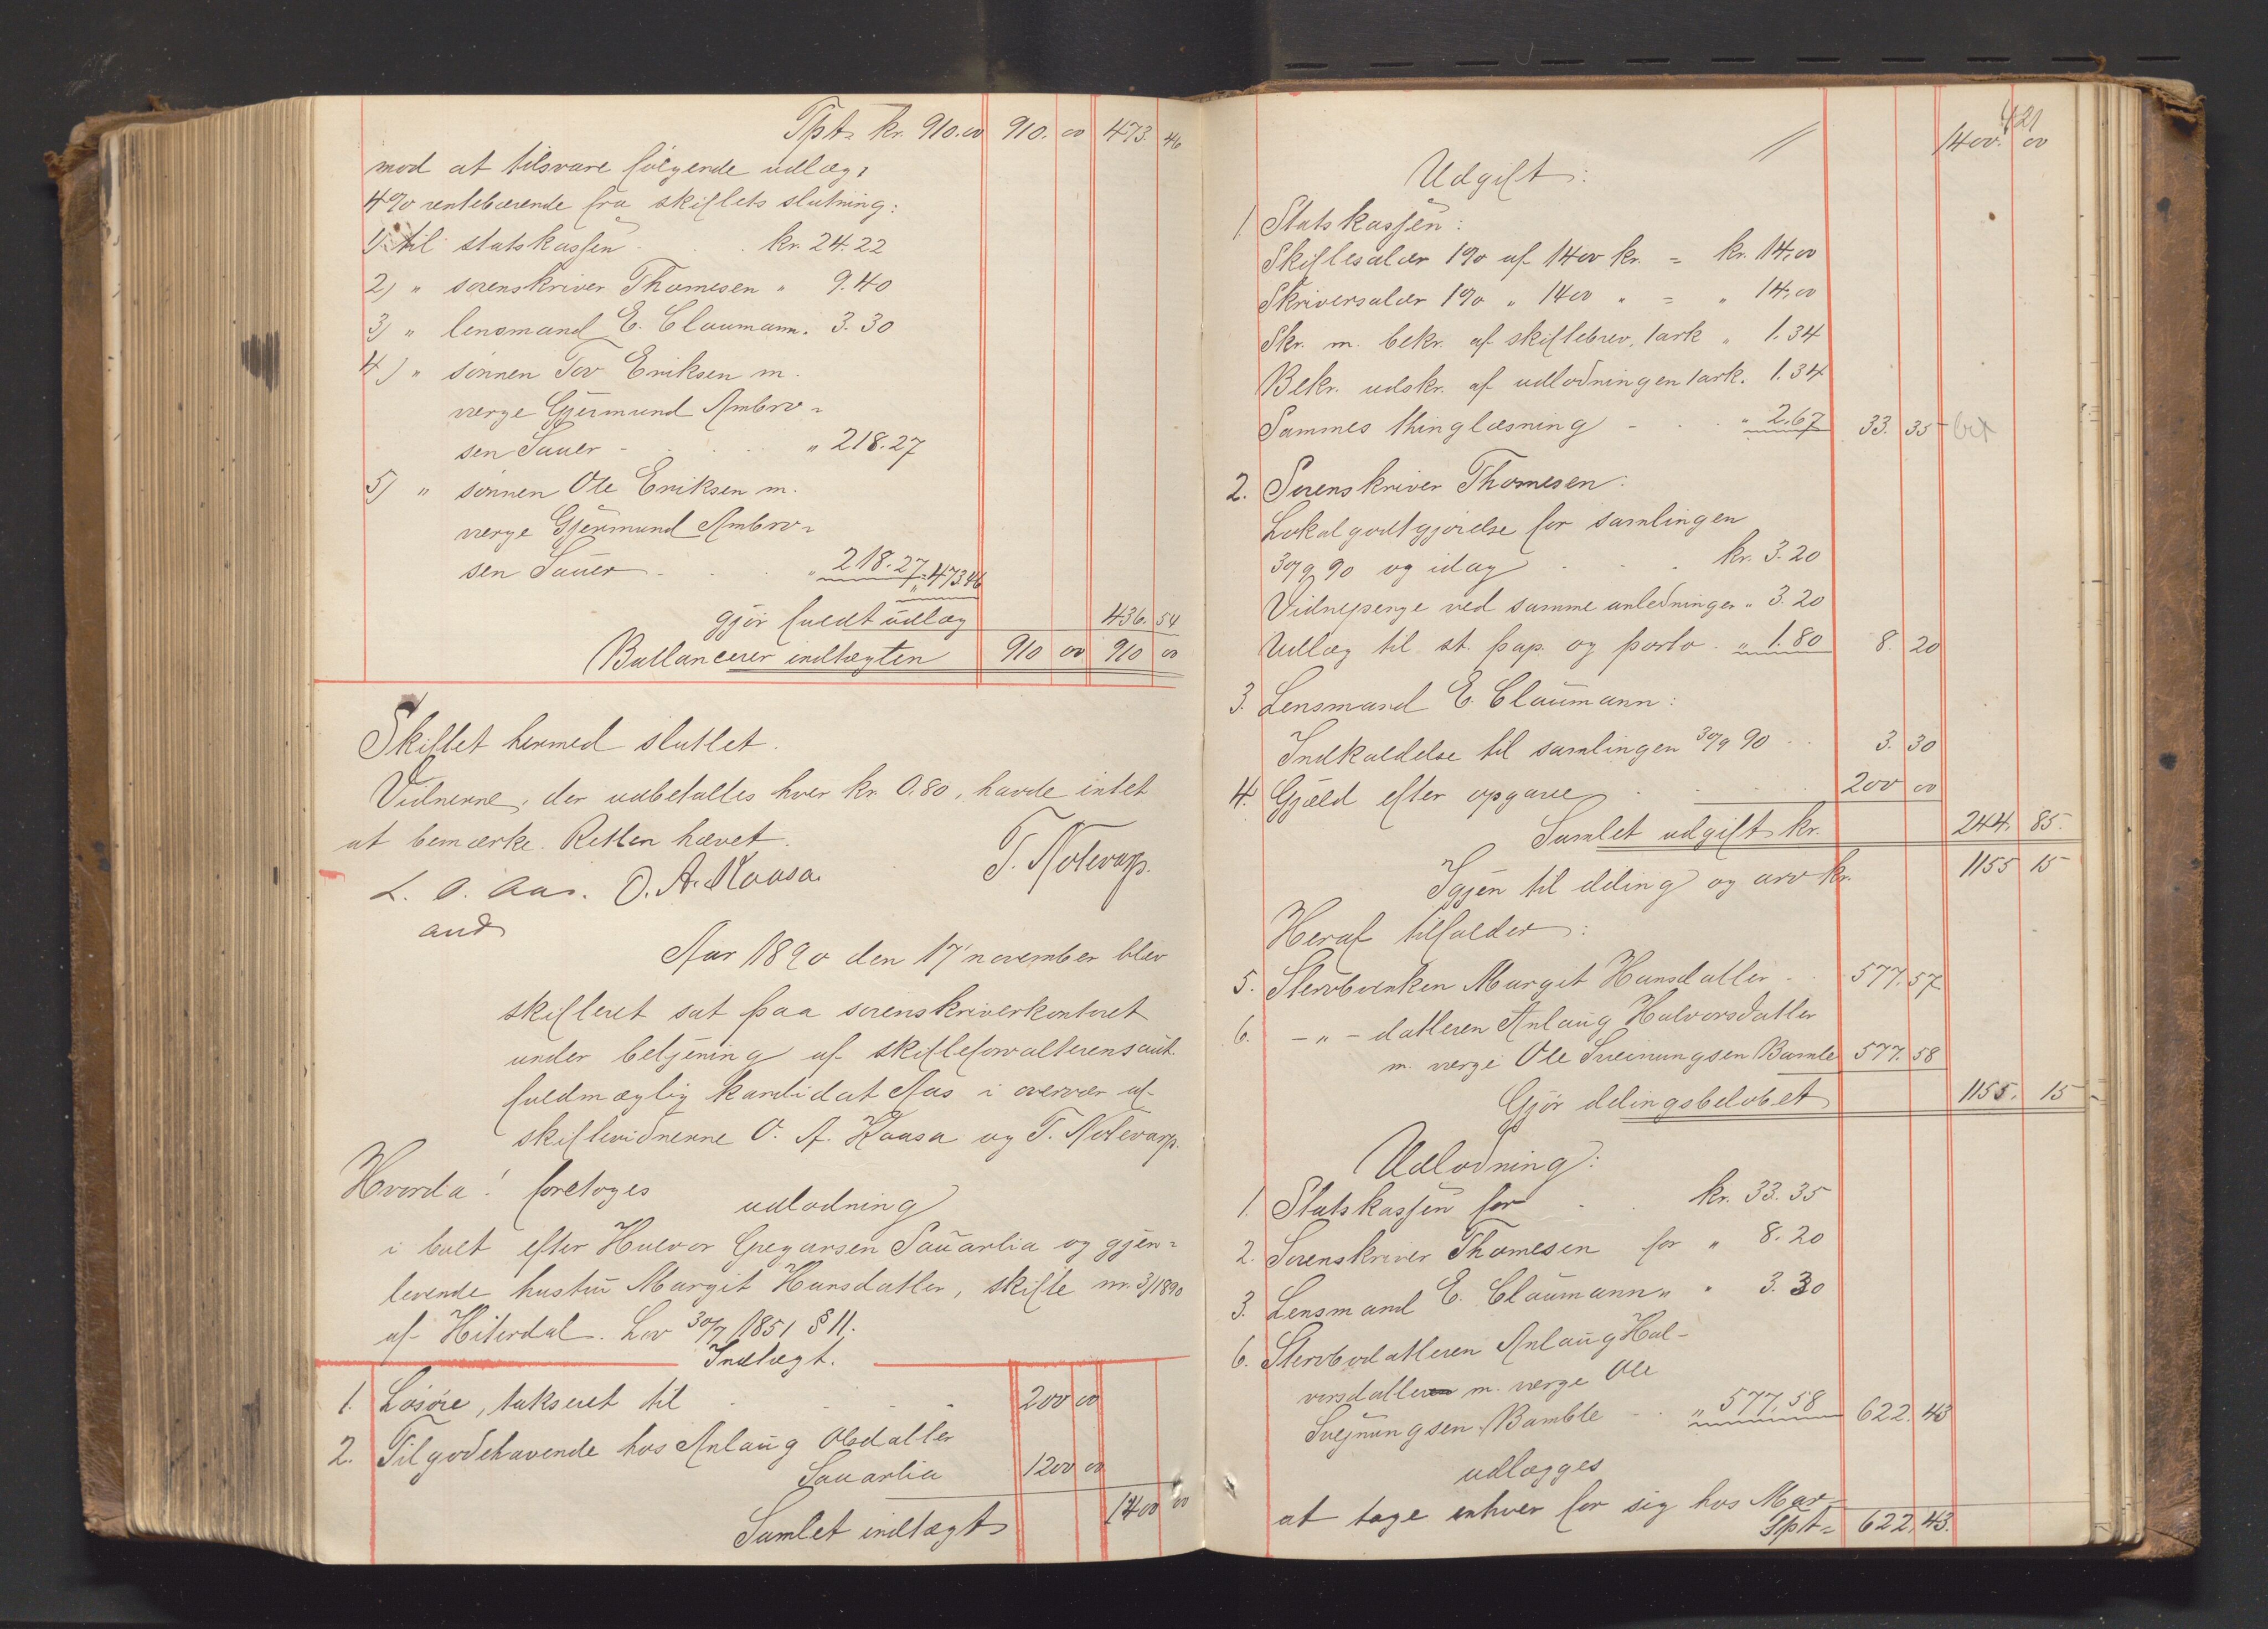 Tpt. kr. 910.00 910. 00 473. 46
mod at tilsvare følgende udlæg,
4% rentebærende fra skiftets slutning:
1) til statskassen kr. 24.22
2) " sorenskriver Thomesen " 9.40
3) " lensmand E. Claumann. 3.30
4) " sønnen Tov Eriksen m.
verge Gjermund Ambro=
sen Sauer - " 218.27
5) " sønnen Ole Eriksen m.
verge Gjermund Ambro=
sen Sauer - " 218.27 = 473.46
gjør fuldt udlæg 436. 54
Ballancerer indtægten 910 00 910 00
Skiftet hermed sluttet.
Vidnerne, der udbetaltes hver kr. 0.80, havde intet
at bemærke. Retten hævet.
L. O. Aas. O. A. Kaasa. T. Notevarp.
aud
Aar 1890 den 17 november blev
skifteret sat paa sorenskriverkontoret
under betjening af skifteforvalterens aut.
fuldmægtig kandidat Aas i overvær af
skiftevidnerne O. A. Kaasa og T. Notevarp.
Hvorda! foretoges udlodning
i boet efter Halvor Gregarsen Sauarlia og gjen=
levende hustru Margit Hansdatter, skifte nr. 3/1890
af Hiterdal. Lov 30/7 1851 § 11.
Indtægt.
1. Løsøre, takseret til - 200 00
2. Tilgodehavende hos Anlaug Olsdatter
Sauarlia 1200 00
Samlet indtægt 1400 00
421
// 1400. 00
Udgift:
1. Statskassen:
Skiftesalær 1% af 1400 kr. = kr. 14,00
Skriversalær 1% " 1400 " = " 14,00
Skr. m. bekr. af skiftebrev, 1 ark " 1.34
Bekr. udskr. af udlodningen 1 ark. 1.34
Sammes thinglæsning - " 2.67 33. 35 bet
2. Sorenskriver Thomesen:
Lokalgodtgjørelse for samlingen
30/9 90 og idag kr. 3.20
Vidnepenge ved samme anledninger " 3.20
Udlæg til st. pap. og porto. " 1.80 8. 20
3. Lensmand E. Claumann:
Indkaldelse til samlingen 30/9 90 3. 30
4. Gjæld efter opgave 200 00
Samlet udgift kr. 244. 85.
Igjen til deling og arv kr. 1155 15
Heraf tilfalder:
5. Stervboenken Margit Hansdatter - 577. 57
6. - " - datteren Anlaug Halvorsdatter
m. verge Ole Sveinungsen Bamle 577. 58
Gjør delingsbeløbet 1155. 15
Udlodning:
1. Statskassen for kr. 33.35
2. Sorenskriver Thomesen for " 8.20
3. Lensmand E. Claumann " " 3.30
6. Stervbodatteren Anlaug Hal-
vorsdatteren m. verge Ole
Svejnungsen Bamble - " 577.58 622. 43
udlægges
at tage enhver for sig hos Mar-
Tpt= 622. 43.